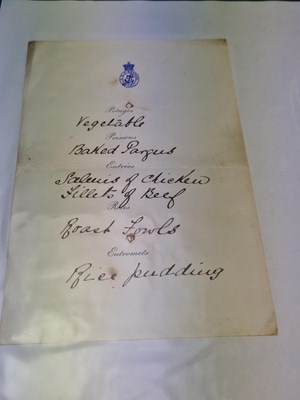 Potages
Vegetable
Poissons
Baked Pargus
Entrées
Salmis of Chicken
Fillets of Beef
Rôts
Roast Fowls
Entremets
Rice pudding